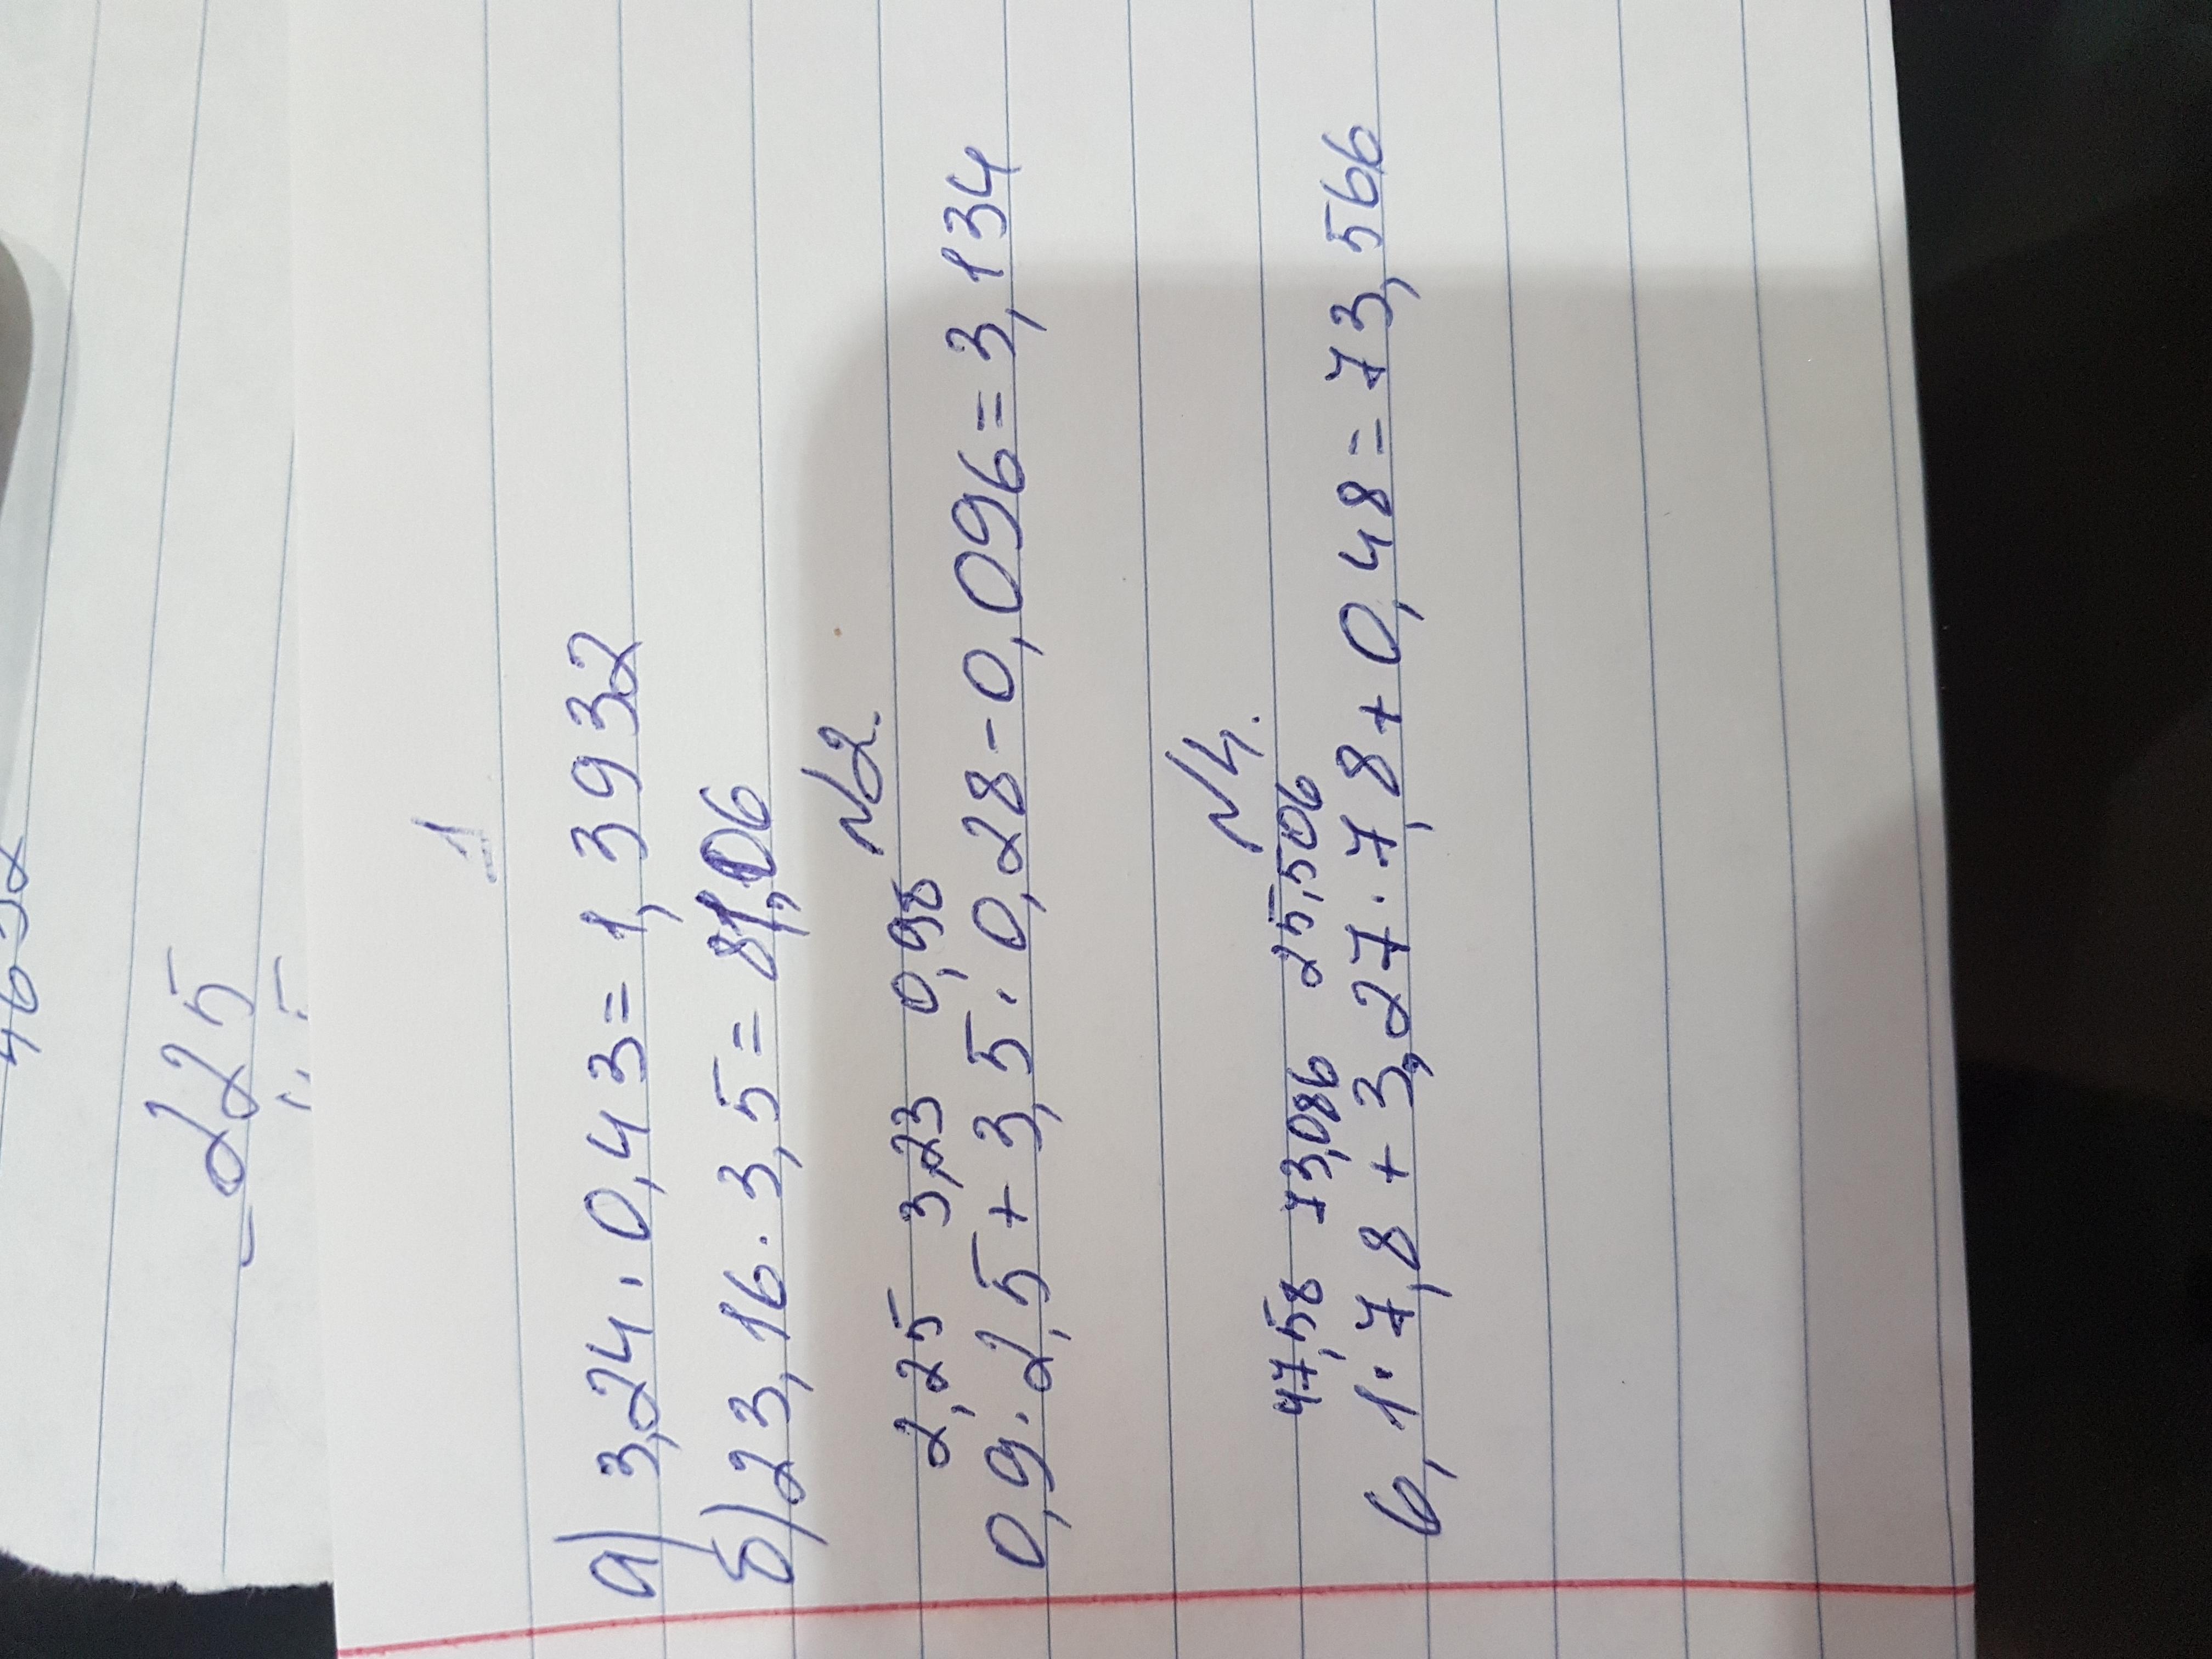 1
а) 3,24 · 0,43 = 1,3932
б) 23,16 · 3,5 = 81,06
N2.
2,25 3,23 0,98
0,9 · 2,5 + 3,5 · 0,28 - 0,096 = 3,134
N4.
47,58 73,086 25,506
6,1 · 7,8 + 3,27 · 7,8 + 0,48 = 73,566
225